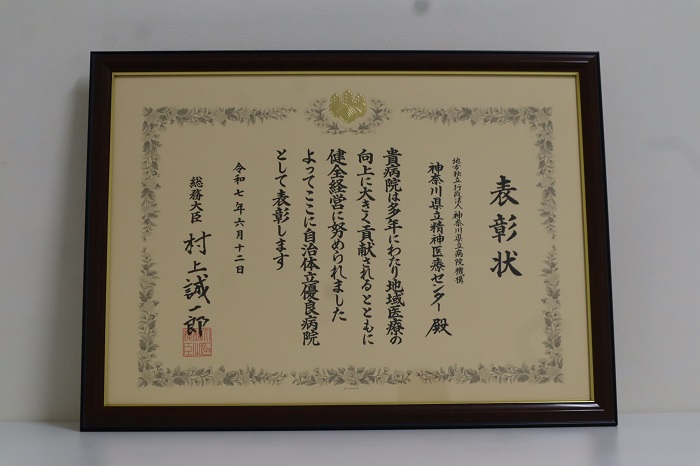 表彰状
地方独立行政法人神奈川県立病院機構
神奈川県立精神医療センター 殿
貴病院は多年にわたり地域医療の
向上に大きく貢献されるとともに
健全経営に努められました
よってここに自治体立優良病院
として表彰します
令和七年六月十二日
総務大臣 村上誠一郎